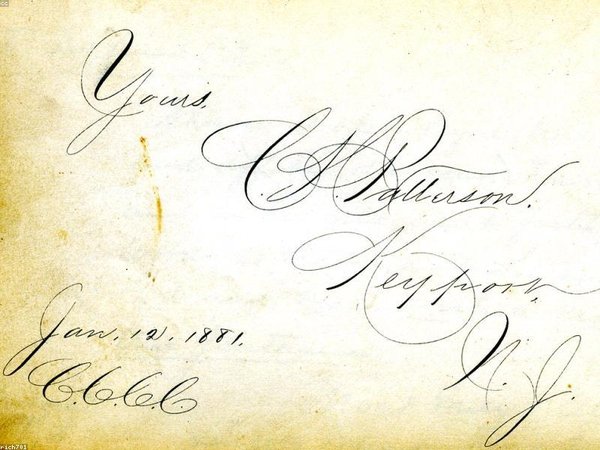 Yours,
C. A. Patterson.
Keyport,
N. J.
Jan. 12. 1881.
C.C.C.C.
rich701